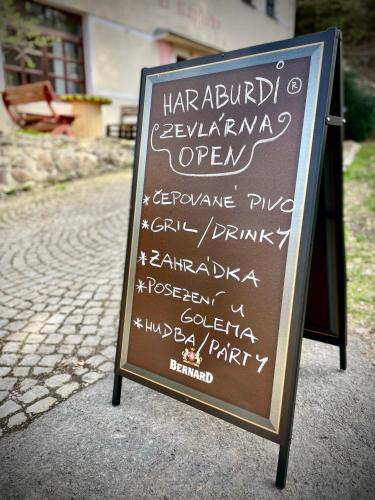 HARABURDÍ ®
ZEVLÁRNA
OPEN
* ČEPOVANÉ PIVO
* GRIL/DRINKY
* ZAHRÁDKA
* POSEZENÍ U
GOLEMA
* HUDBA/PÁRTY
BERNARD